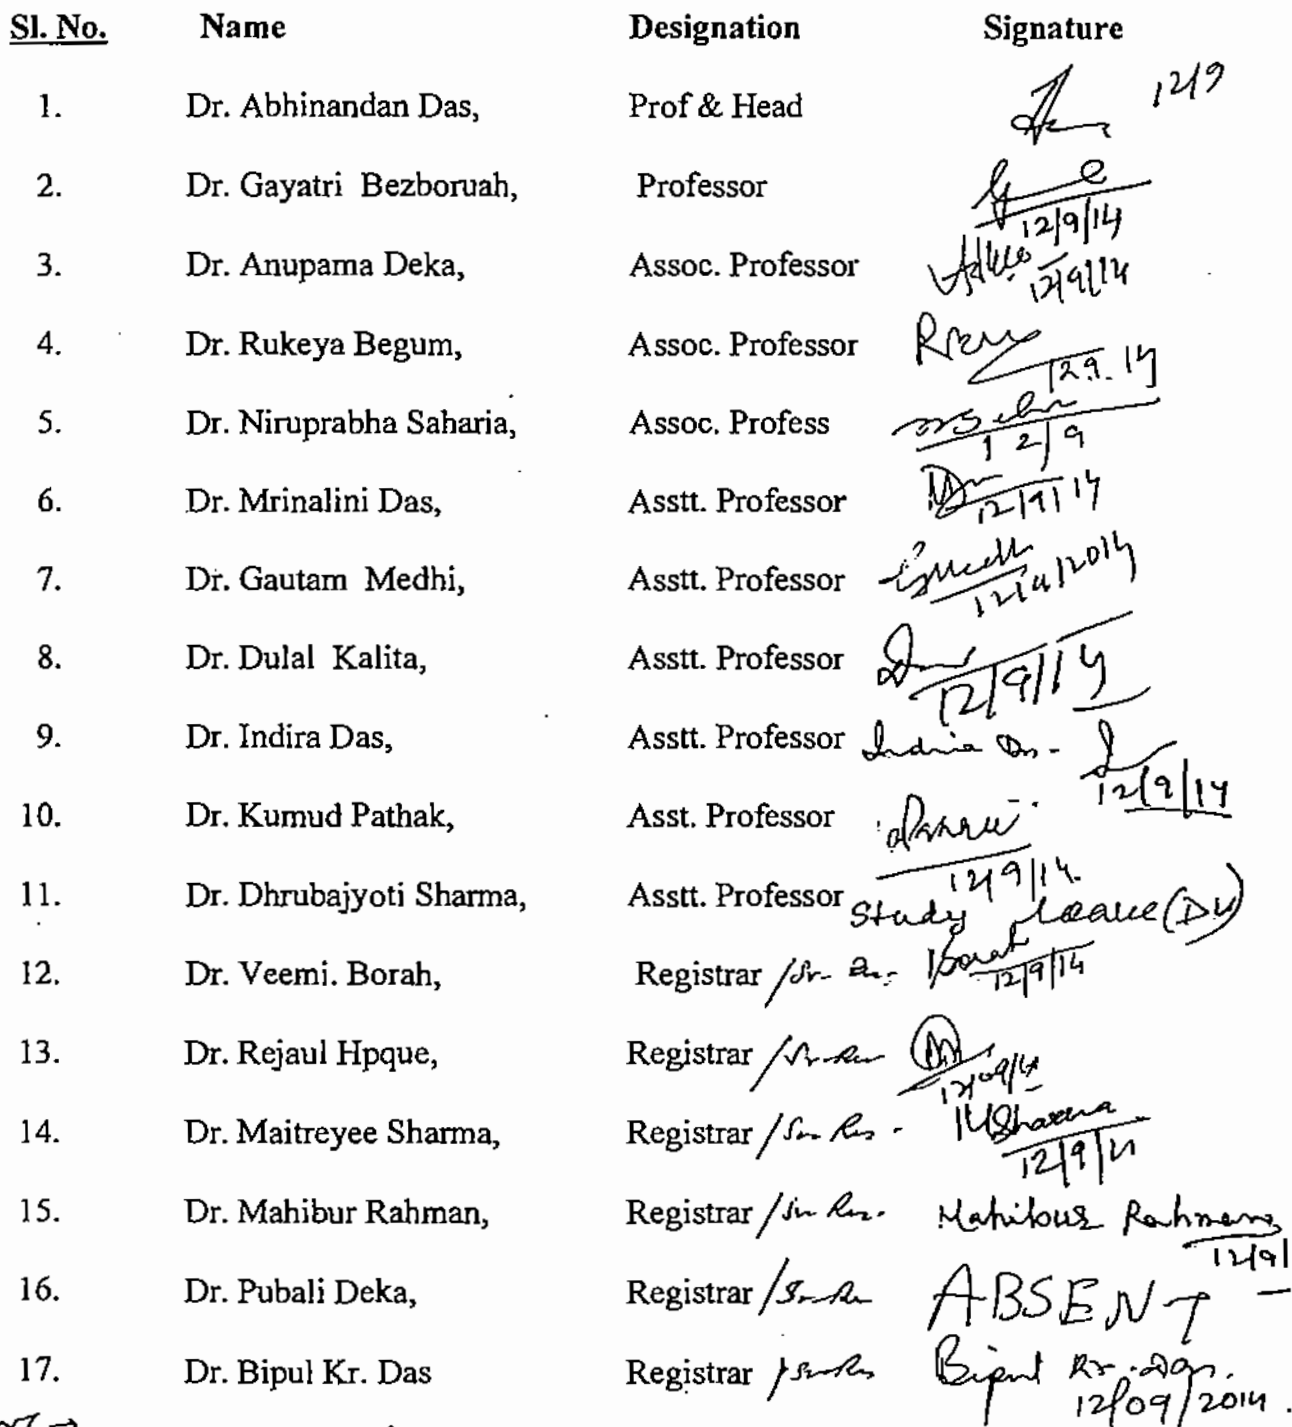 Sl. No. Name Designation Signature
1. Dr. Abhinandan Das, Prof & Head 12/9
2. Dr. Gayatri Bezboruah, Professor
12/9/14
3. Dr. Anupama Deka, Assoc. Professor
12/9/14
4. Dr. Rukeya Begum, Assoc. Professor
12.9.14
5. Dr. Niruprabha Saharia, Assoc. Profess
12/9
6. Dr. Mrinalini Das, Asstt. Professor
12/9/14
7. Dr. Gautam Medhi, Asstt. Professor
8. Dr. Dulal Kalita, Asstt. Professor
12/9/14
9. Dr. Indira Das, Asstt. Professor Indira Das -
12/9/14
10. Dr. Kumud Pathak, Asst. Professor
12/9/14.
11. Dr. Dhrubajyoti Sharma, Asstt. Professor Study leave
12. Dr. Veemi. Borah, Registrar /Sr. Borah
12/9/14
13. Dr. Rejaul Hpque, Registrar
12/09/14
14. Dr. Maitreyee Sharma, Registrar MSharma
12/9/14
15. Dr. Mahibur Rahman, Registrar Mahibur Rahman
12/9/
16. Dr. Pubali Deka, Registrar ABSENT
17. Dr. Bipul Kr. Das Registrar Bipul Kr. Das.
12/09/2014.